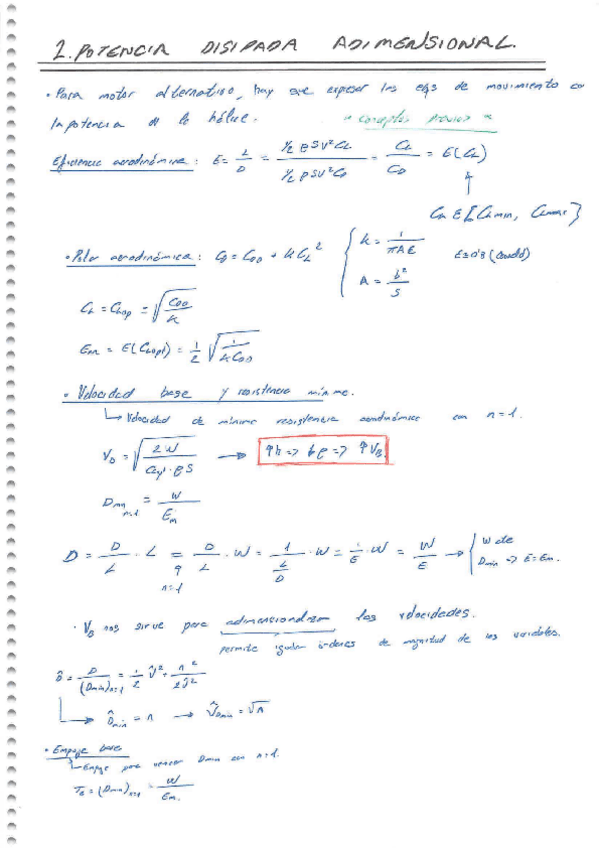 2. POTENCIA DISIPADA ADIMENSIONAL.
• Para motor alternativo, hay que expresar las eqs de movimiento co
la potencia de la hélice. "conceptos previos"
Eficiencia aerodinámica: E = L/D = (1/2 ρSV²CL)/(1/2 ρSV²CD) = CL/CD = E(CL)
CL ∈ [CLmin, CLmax]
• Polar aerodinámica: CD = CD0 + kCL² { k = 1/(πAE)
A = b²/S
CL = CLop = √(CD0/k)
Em = E(CLopt) = 1/2 √(1/(kCD0))
• Velocidad base y resistencia mínima.
↳ Velocidad de mínima resistencia aerodinámica con n=1.
VB = √(2W/(CLopt·ρS)) → ↑h => ↓ρ => ↑VB.
Dmin n=1 = W/Em
D = D/L · L = (n=1) D/L · W = 1/(L/D) · W = 1/E · W = W/E → { W de
Dmin => E=Em.
• VB nos sirve para adimensionalizar las velocidades.
permite igualar órdenes de magnitud de las variables.
D̂ = D/(Dmin)n=1 = 1/2 V̂² + n²/2V̂²
↳ D̂min = n → V̂Dmin = √n
• Empuje base
↳ Empuje para vencer Dmin con n=1.
TB = (Dmin)n=1 = W/Em.